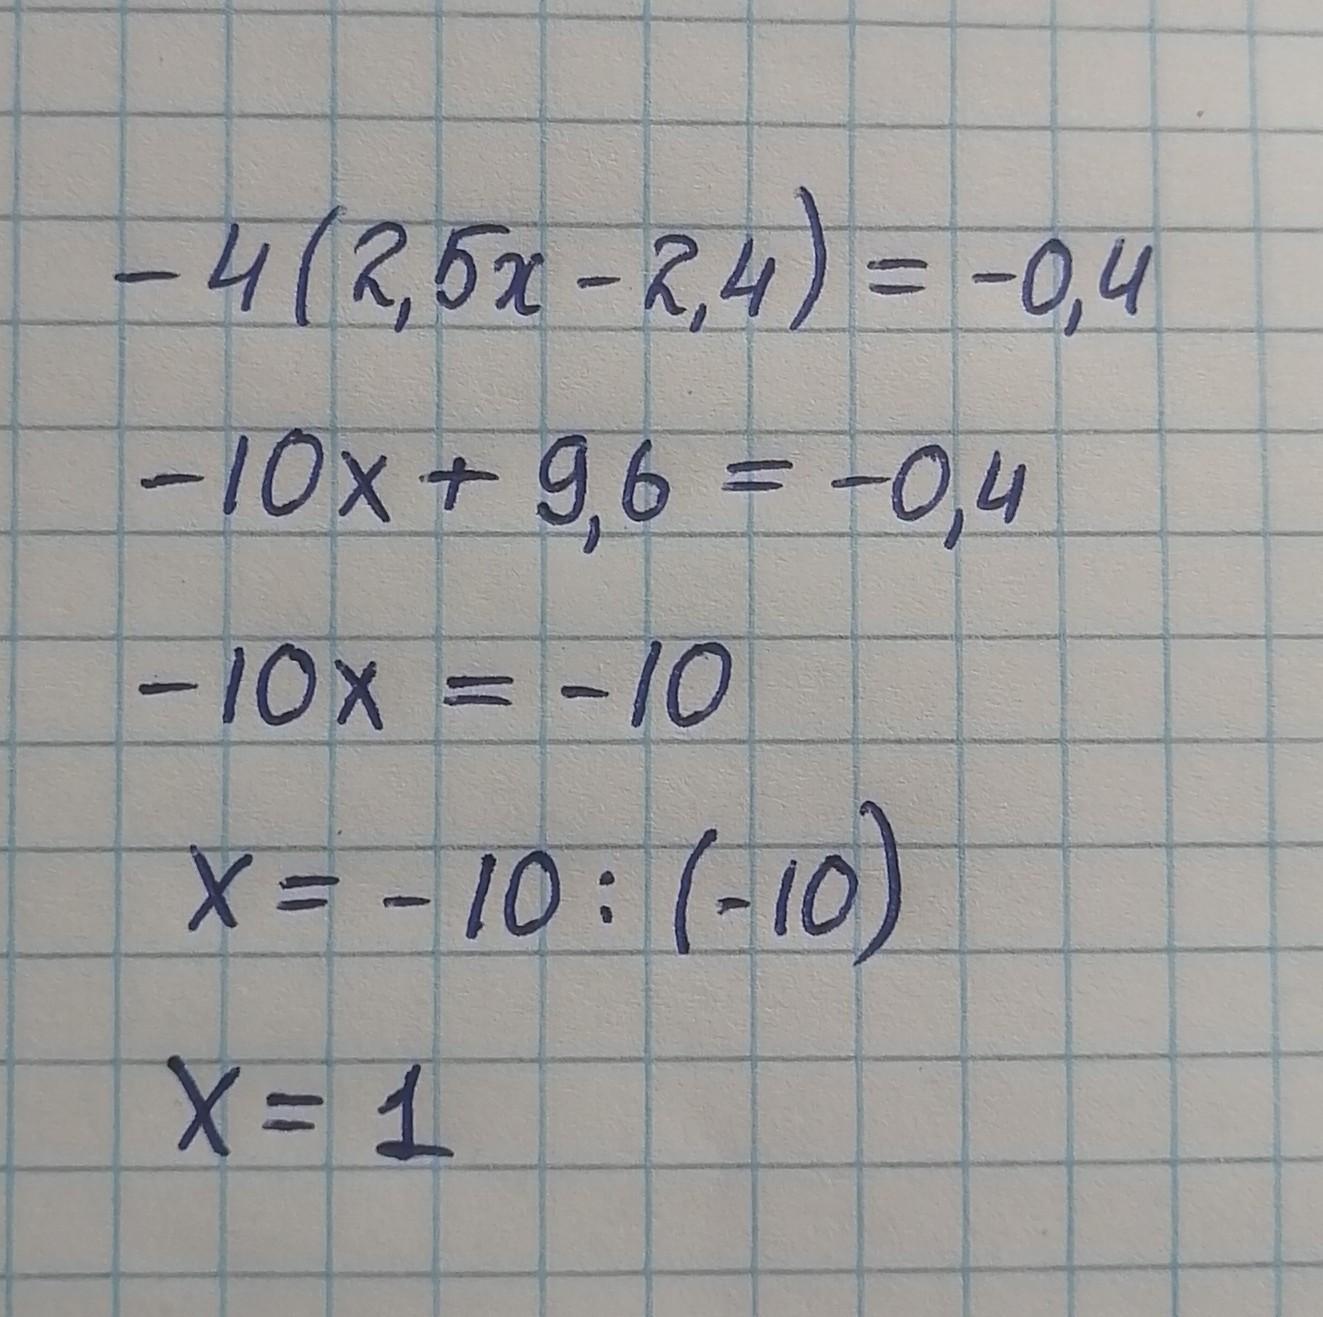 -4(2,5x-2,4)=-0,4
-10x+9,6=-0,4
-10x=-10
x=-10:(-10)
x=1